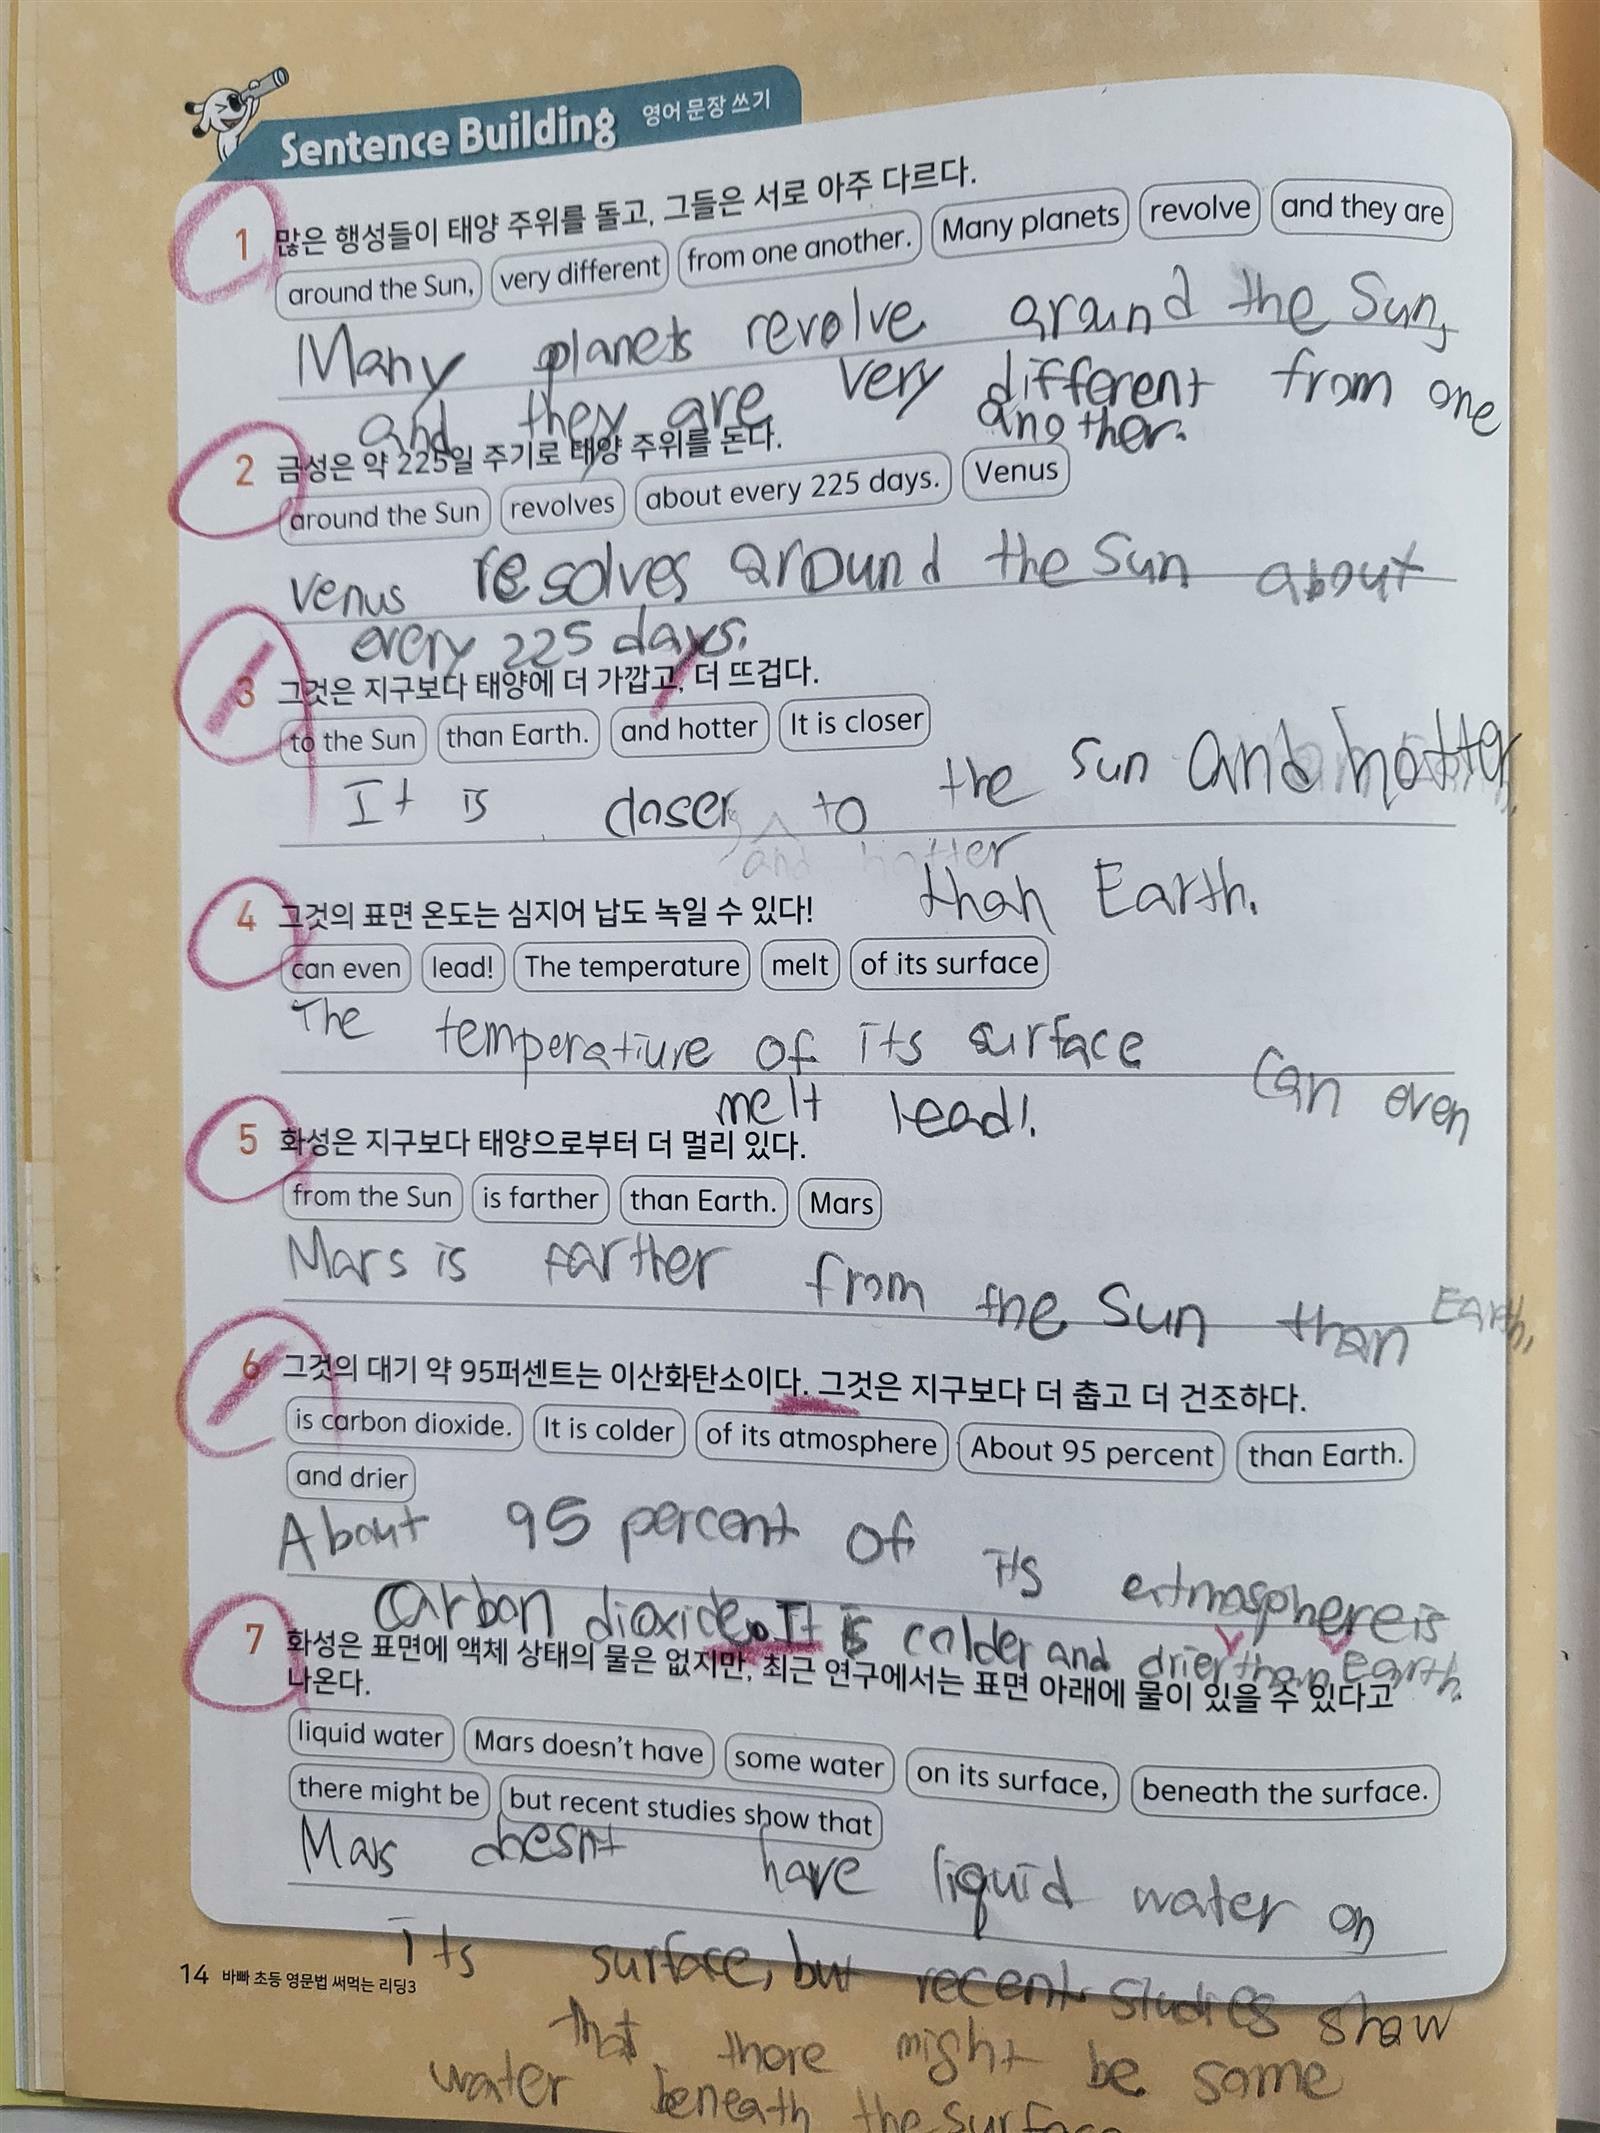 Sentence Building 영어 문장 쓰기
1 많은 행성들이 태양 주위를 돌고, 그들은 서로 아주 다르다.
around the Sun, very different from one another. Many planets revolve and they are
Many planets revolve around the Sun,
and they are very different from one
another.
2 금성은 약 225일 주기로 태양 주위를 돈다.
around the Sun revolves about every 225 days. Venus
Venus resolves around the Sun about
every 225 days.
3 그것은 지구보다 태양에 더 가깝고, 더 뜨겁다.
to the Sun than Earth. and hotter It is closer
It is closer to the sun and hotter
and hotter
than Earth.
4 그것의 표면 온도는 심지어 납도 녹일 수 있다!
can even lead! The temperature melt of its surface
The temperatiure of its surface can even
melt lead!
5 화성은 지구보다 태양으로부터 더 멀리 있다.
from the Sun is farther than Earth. Mars
Mars is farther from the Sun than Earth.
6 그것의 대기 약 95퍼센트는 이산화탄소이다. 그것은 지구보다 더 춥고 더 건조하다.
is carbon dioxide. It is colder of its atmosphere About 95 percent than Earth.
and drier
About 95 percent of its extmosphere is
carbon dioxide. It is colder and drier than Earth.
7 화성은 표면에 액체 상태의 물은 없지만, 최근 연구에서는 표면 아래에 물이 있을 수 있다고
나온다.
liquid water Mars doesn't have some water on its surface, beneath the surface.
there might be but recent studies show that
Mars doesn't have liquid water on
its surface, but recent studies show
that there might be some
water beneath the surface
14 바빠 초등 영문법 써먹는 리딩3